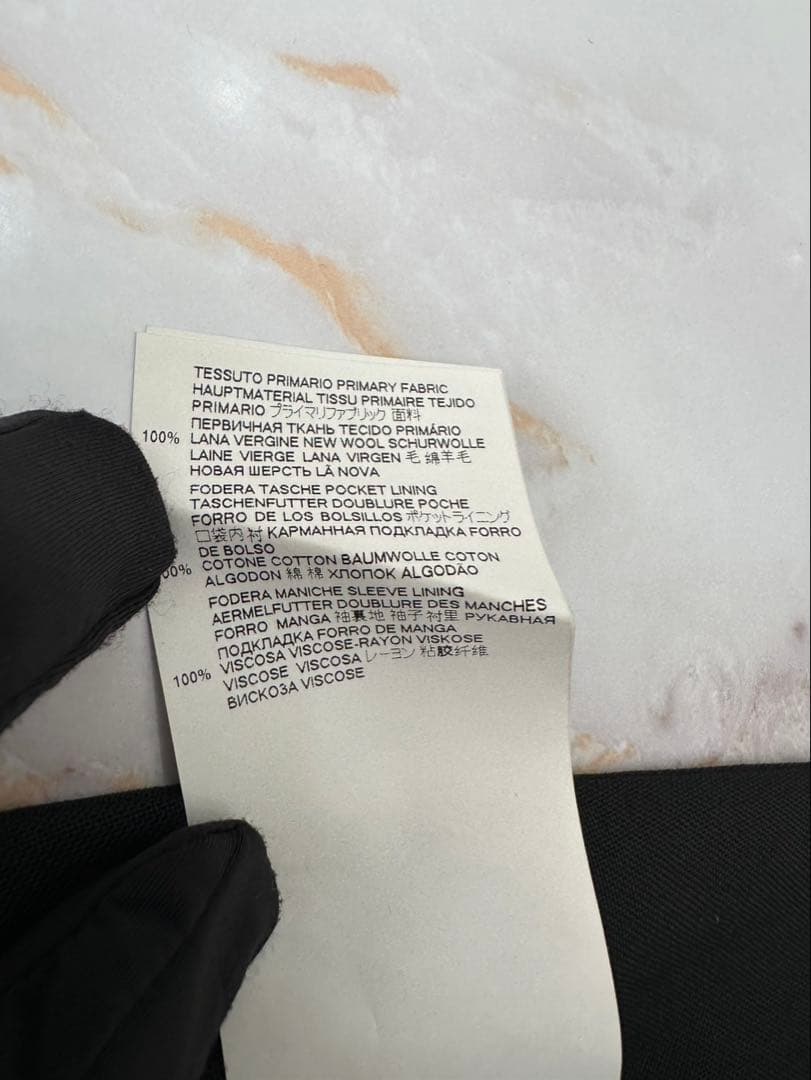 TESSUTO PRIMARIO PRIMARY FABRIC
HAUPTMATERIAL TISSU PRIMAIRE TEJIDO
PRIMARIO プライマリファブリック 面料
ПЕРВИЧНАЯ ТКАНЬ TECIDO PRIMÁRIO
100% LANA VERGINE NEW WOOL SCHURWOLLE
LAINE VIERGE LANA VIRGEN 毛 绵羊毛
НОВАЯ ШЕРСТЬ LÃ NOVA
FODERA TASCHE POCKET LINING
TASCHENFUTTER DOUBLURE POCHE
FORRO DE LOS BOLSILLOS ポケットライニング
口袋内衬 КАРМАННАЯ ПОДКЛАДКА FORRO
DE BOLSO
00% COTONE COTTON BAUMWOLLE COTON
ALGODON 綿 棉 ХЛОПОК ALGODÃO
FODERA MANICHE SLEEVE LINING
AERMELFUTTER DOUBLURE DES MANCHES
FORRO MANGA 袖裏地 袖子衬里 РУКАВНАЯ
ПОДКЛАДКА FORRO DE MANGA
100% VISCOSA VISCOSE-RAYON VISKOSE
VISCOSE VISCOSA レーヨン 粘胶纤维
ВИСКОЗА VISCOSE